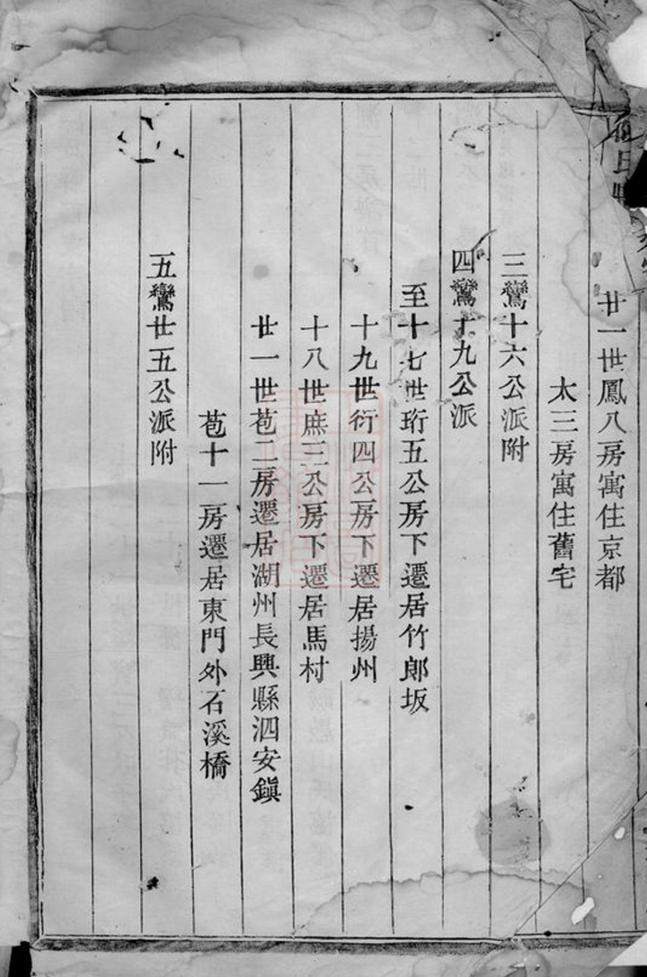 廿一世鳳八房寓住京都
太三房寓住舊宅
三鸞十六公派附
四鸞十九公派
至十七世珩五公房下遷居竹郎坂
十九世衍四公房下遷居揚州
十八世庶三公房下遷居馬村
廿一世苞二房遷居湖州長興縣泗安鎭
苞十一房遷居東門外石溪橋
五鸞廿五公派附